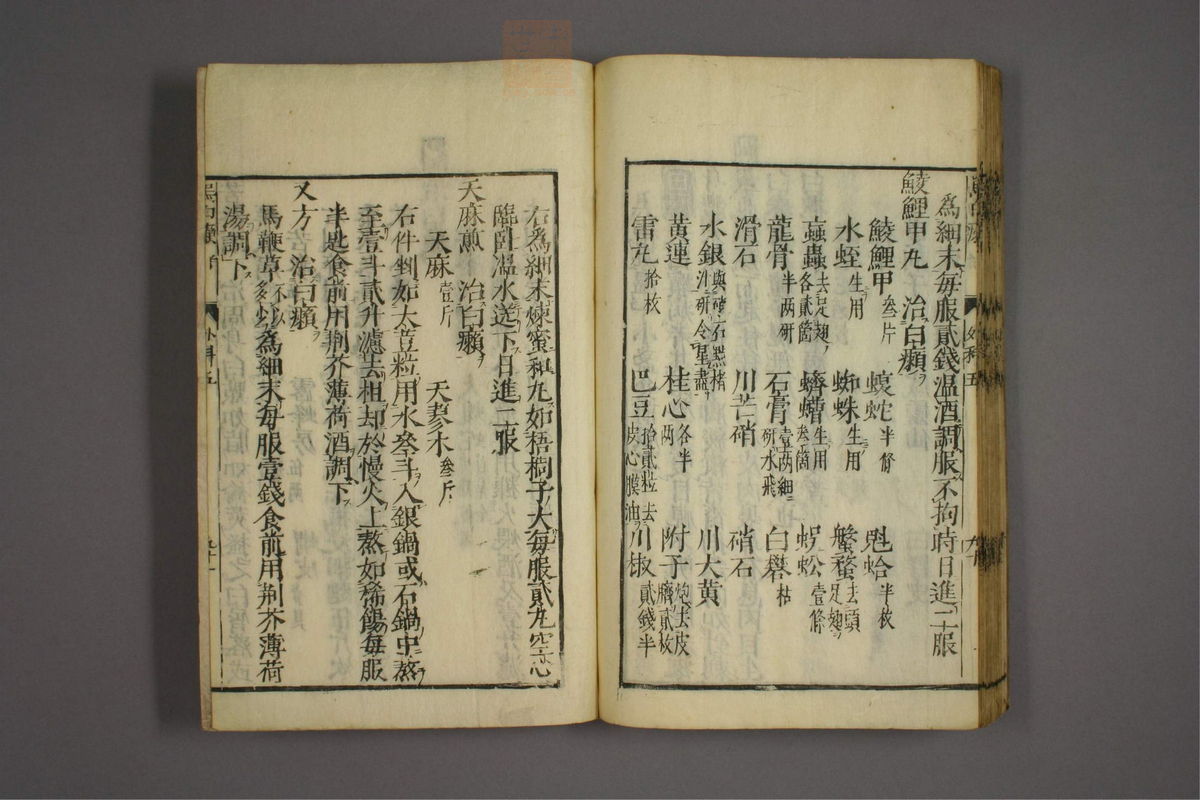 為細末每服貳錢温酒調服不拘時日進二服
鯪鯉甲丸　治白癩
鯪鯉甲叁片　蝮蛇半條　䖤蛤半枚
水蛭生用　蜘蛛生用　蟹蝥去頭足翅
蝱蟲去足翅各貳箇　蠐螬生用叁箇　蜈蚣壹條
龍骨半两研　石膏壹两細研水飛　白礬枯
滑石　川芒硝　硝石
水銀與砂研令星盡　桂心各半两　川大黄
黄連　附子炮去皮臍貳枚
雷丸拾枚　巴豆拾貳粒去皮心膜油　川椒貳錢半
右為細末煉蜜和丸如梧桐子大每服貳丸空心
臨卧温水送下日進二服
天麻煎　治白癩
天麻壹斤　天蓼木叁斤
右件剉如大荳粒用水叁斗入銀鍋或石鍋中熬
至壹斗貳升濾去柤却於慢火上熬如稀餳每服
半匙食前用荆芥薄荷酒調下
又方　治白癩
馬鞭草不以多少為細末每服壹錢食前用荆芥薄荷
湯調下
外科五